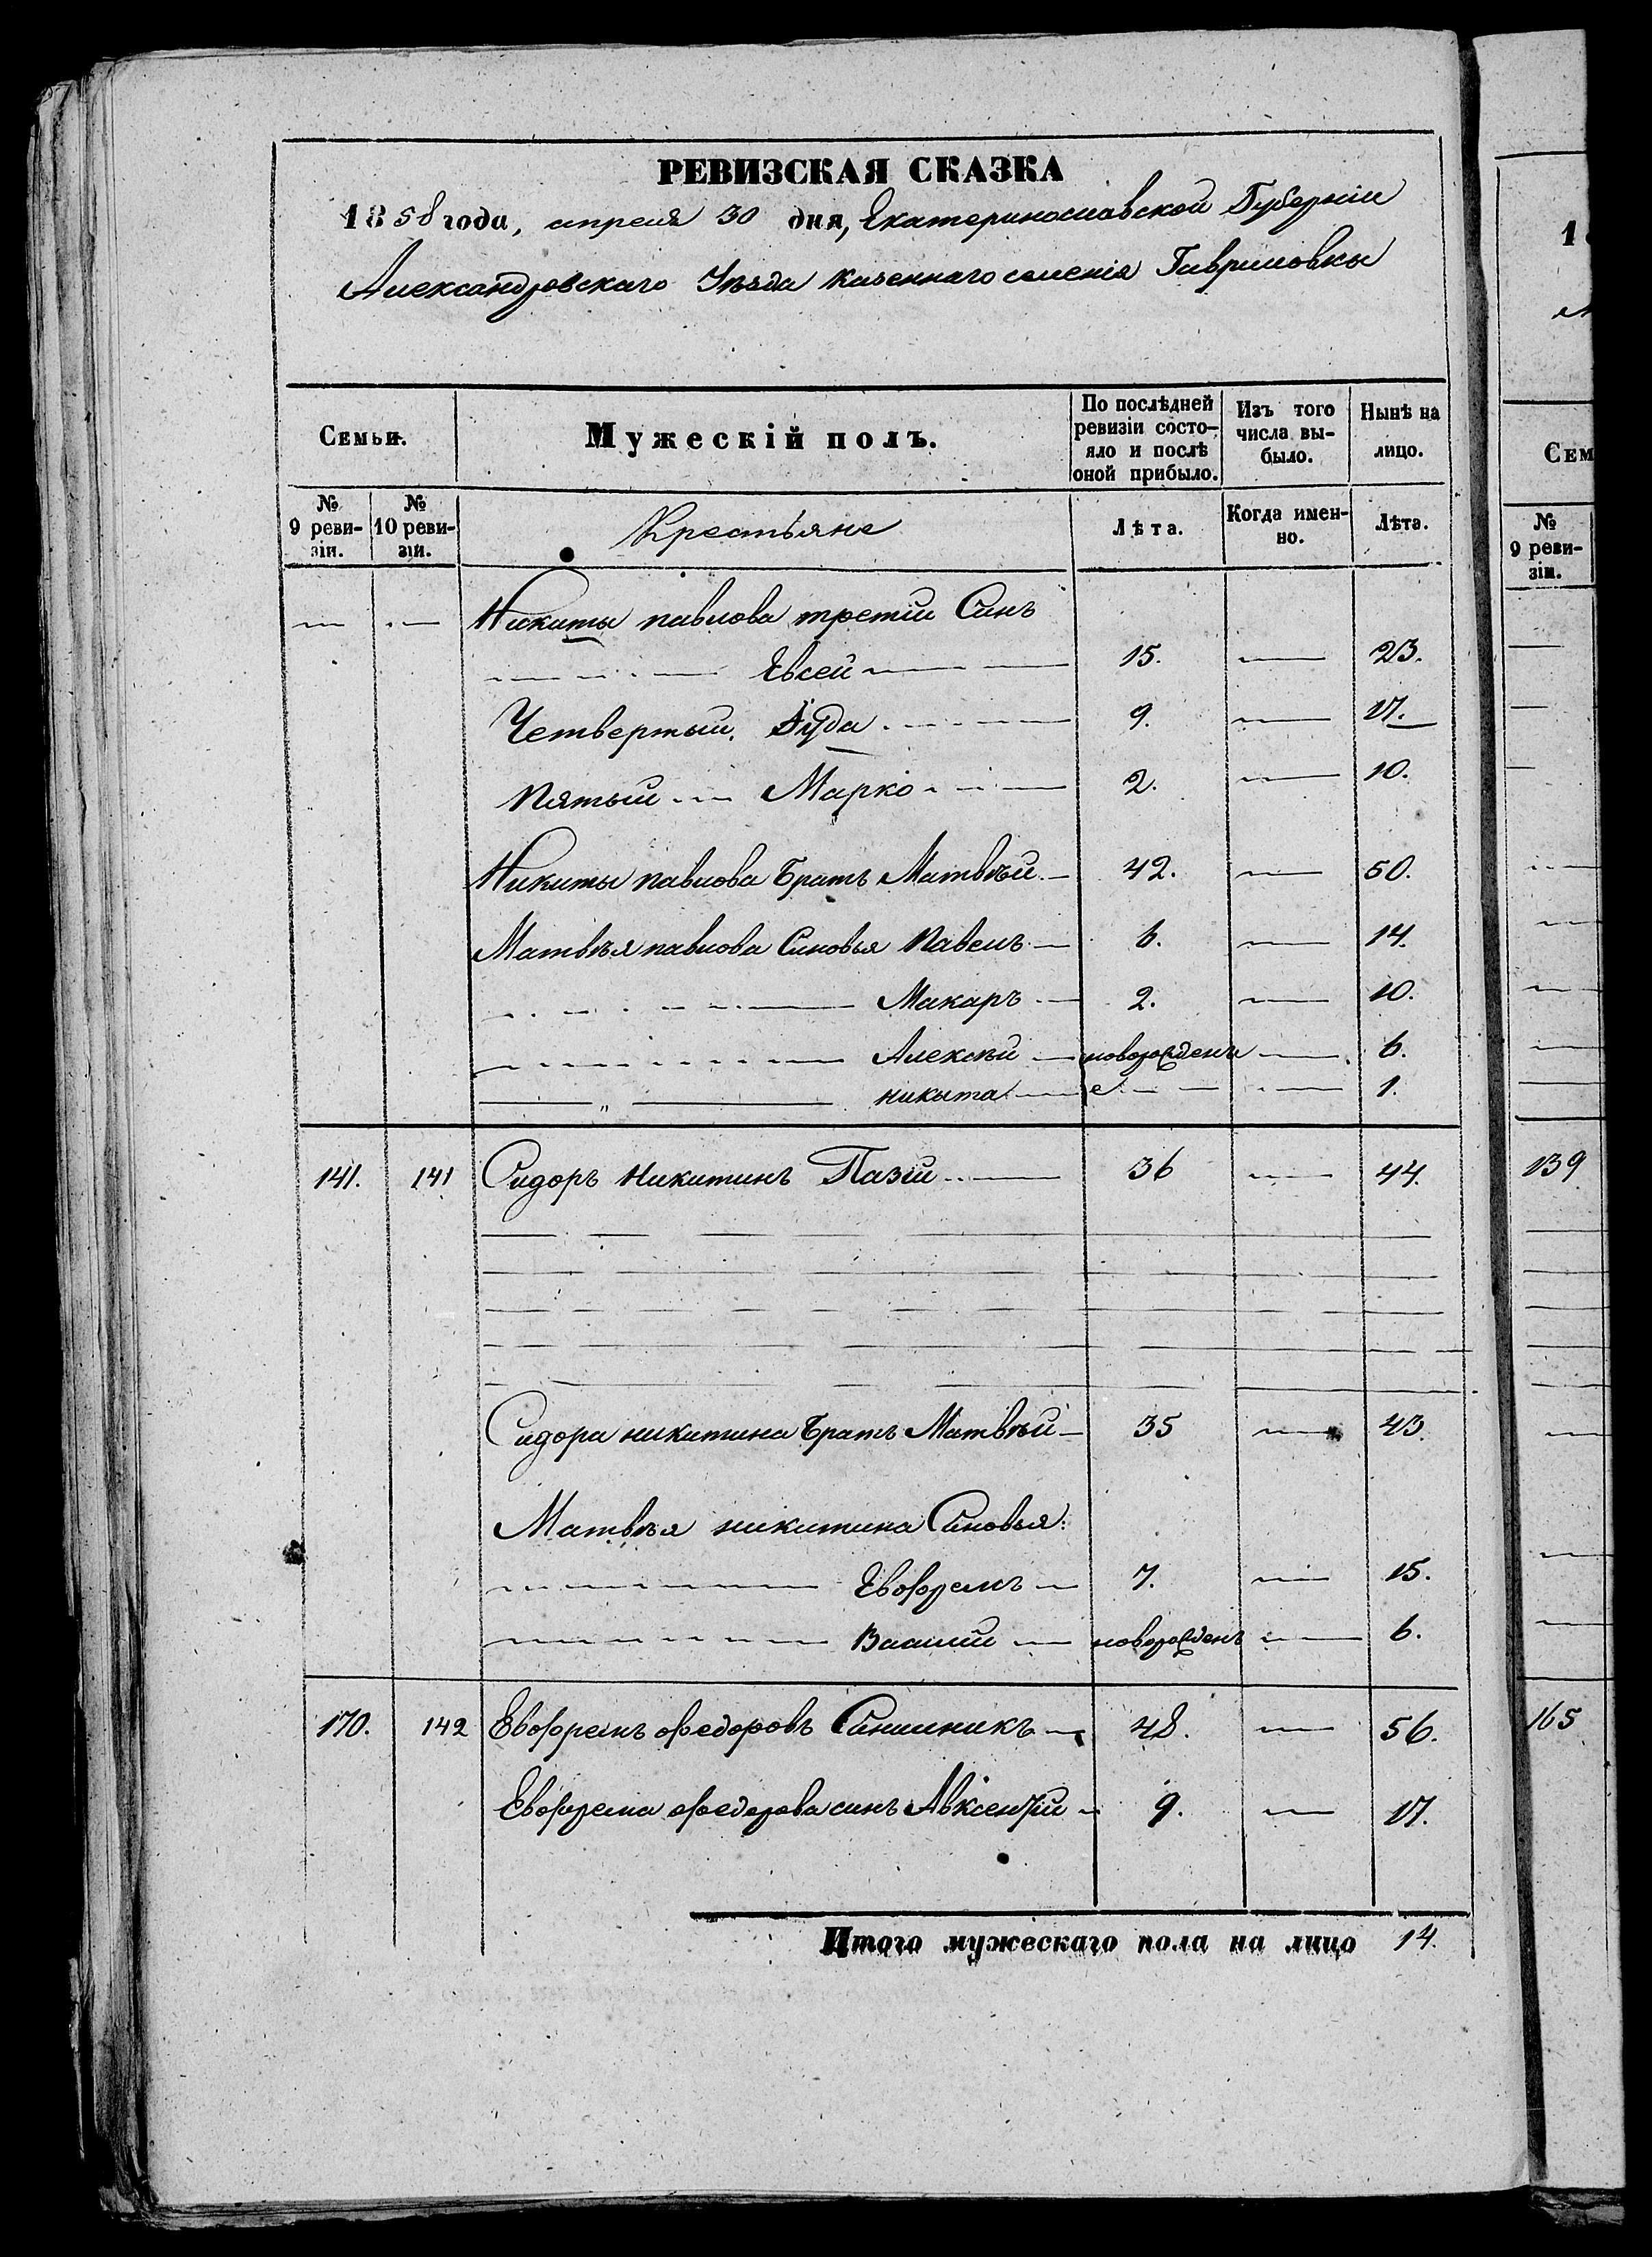 РЕВИЗСКАЯ СКАЗКА
1858 года, апреля 30 дня, Екатеринославской Губерніи
Александровскаго Уѣзда казеннаго селенія Гавриловки
Семьи.
Мужескій полъ.
По послѣдней ревизіи состо-
яло и послѣ
оной прибыло.
Изъ того
числа вы-
было.
Нынѣ на
лицо.
№
9 реви-
зіи.
№
10 реви-
зіи.
Крестьяне
Лѣта.
Когда имен-
но.
Лѣта.
— — Никиты павлова третій Синъ
Евсей — 15. — 23.
Четвертый. Іуда — 9. — 17.
Пятый — Марко — 2. — 10.
Никиты павлова Братъ Матвѣй — 42. — 50.
Матвѣя павлова Синовья Павелъ — 6. — 14.
Макаръ — 2. — 10.
Алексѣй — новорожденъ — 6.
никита — е — 1.
141. 141 Сидоръ Никитинъ Пазій — 36 — 44.
Сидора никитина Братъ Матвѣй — 35 — 43.
Матвѣя никитина Синовья:
Евфремъ — 7. — 15.
Василій — новорожденъ — 6.
170. 142 Евфремъ федоровъ — 48. — 56.
Евфрема федорова синъ Авксентій — 9. — 17.
Итого мужескаго пола на лицо 14.
1
Сем
№
9 реви-
зіи.
139
165